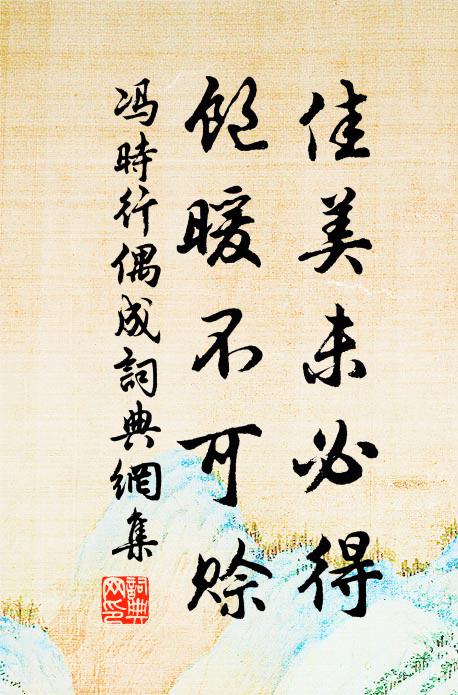 佳美未必得
飽暖不可賒
馮時行偶成詞典網集
詞典